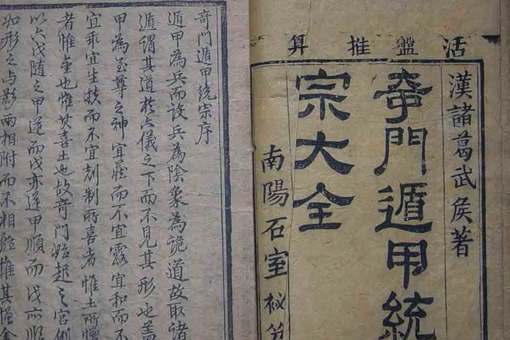 活盤推算
漢諸葛武侯著
奇門遁甲統
宗大全
南陽石室秘
奇門遁甲統宗序
遁甲為兵而設兵為陰象為詭道故取諸
遁謂其遁於六儀之下而不見其形也蓋
甲為至尊之神宜藏而不宜露宜和而不
宜乘宜生扶而不宜制所喜者惟土所懼
者惟金也惟其喜土也故奇門始起之宮例
以六戊隨之甲逆而戊亦逆甲順而戊亦順
如形之与影兩相附而不相離惟其懼金